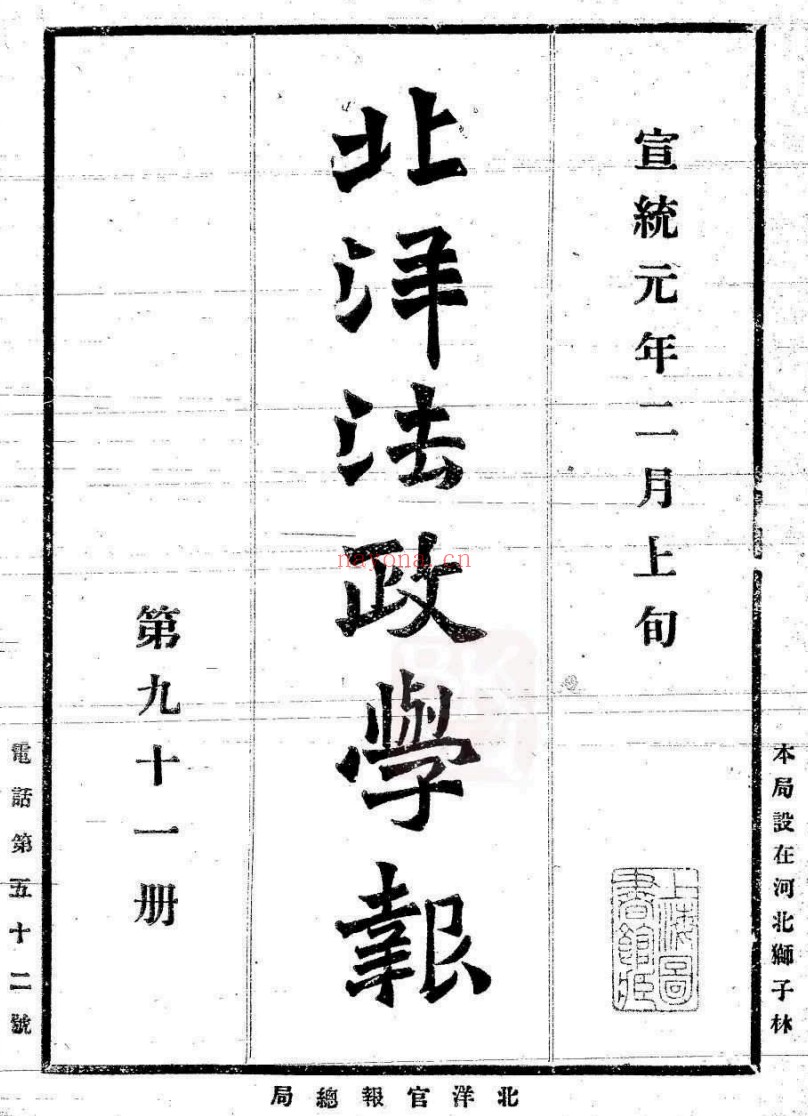 宣統元年二月上旬
北洋法政學報
第九十一册
本局設在河北獅子林
電話第五十二號
北洋官報總局
上海圖書館藏
nayona.cn